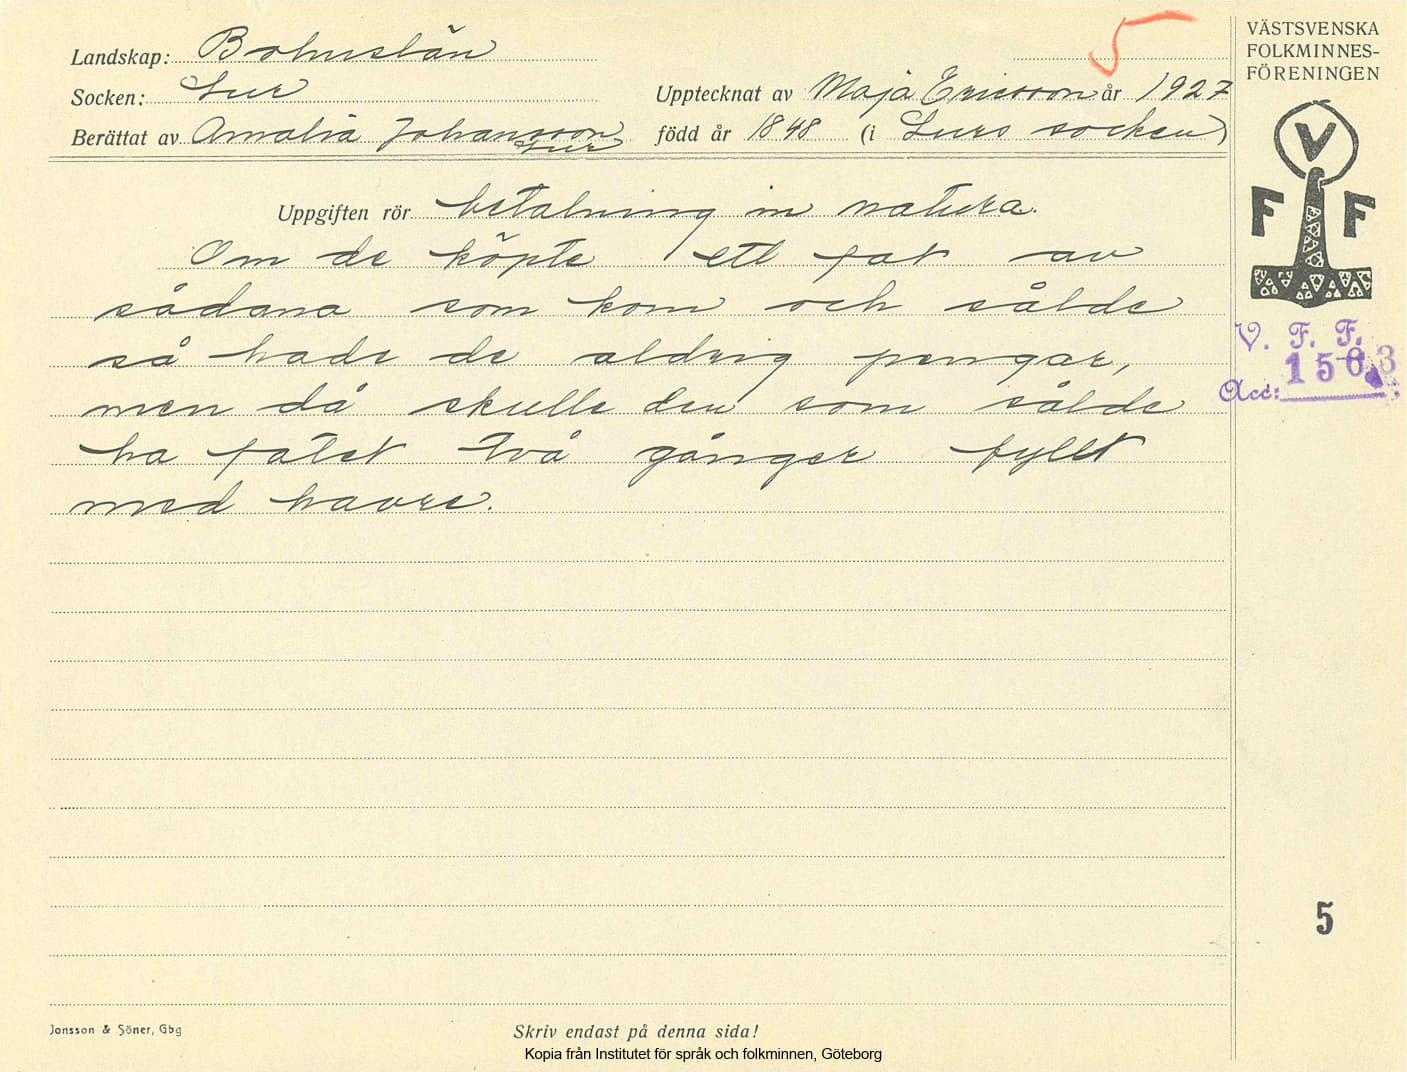 Landskap: Bohuslän
Socken: Lur
Upptecknat av Maja Ericsson år 1927
Berättat av Amalia Johansson Lur
född år 1848 (i Lurs socken)
5
VÄSTSVENSKA
FOLKMINNES-
FÖRENINGEN
V
F F
V. F. F.
Acc: 1563
Uppgiften rör betalning in natura.
Om de köpte ett fat av
sådana som kom och sålde
så hade de aldrig pengar,
men då skulle den som sålde
ha fatet två gånger fyllt
med havre.
5
Jonsson & Söner, Gbg
Skriv endast på denna sida!
Kopia från Institutet för språk och folkminnen, Göteborg